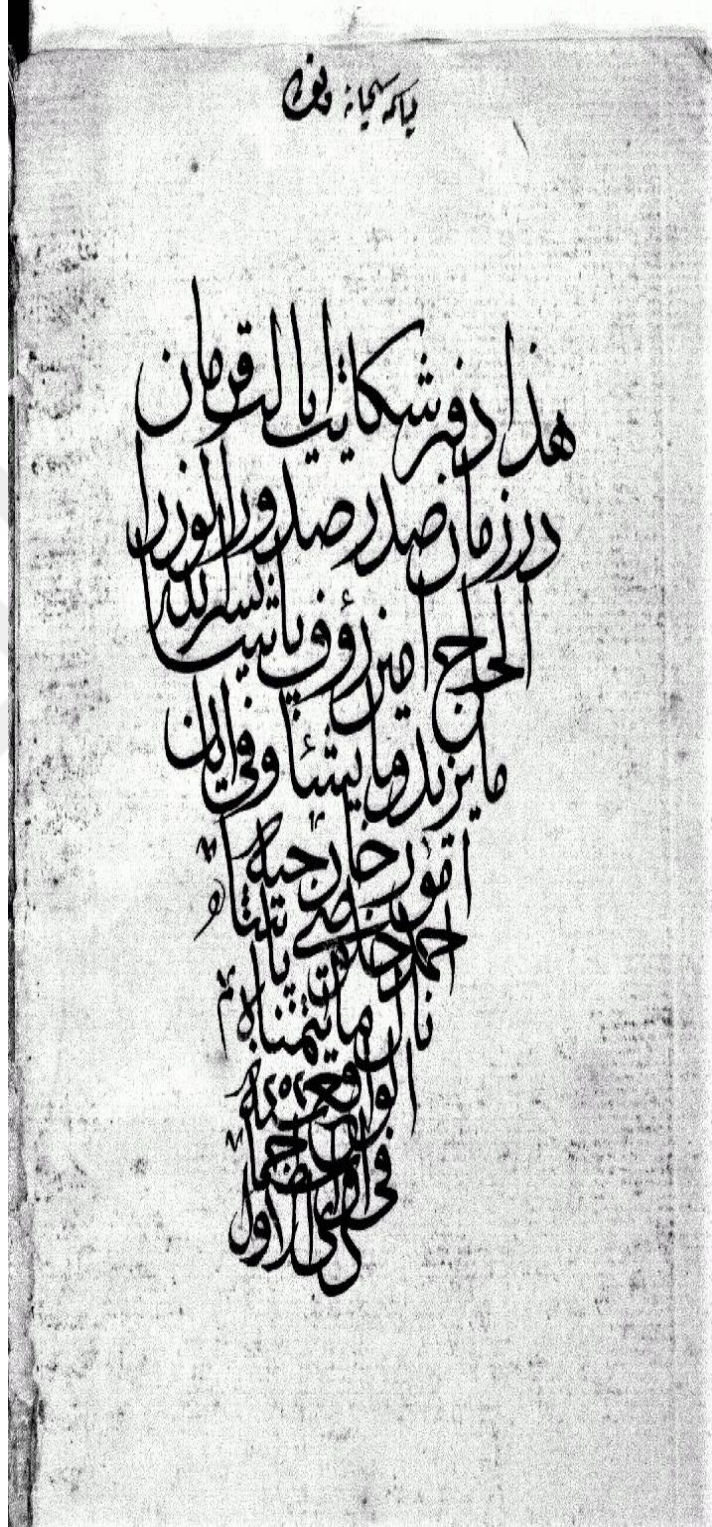 سبحانه
هذا دفتر شكايت ايالت قرمان
در زمان صدر صدور الوزرا
الحاج امين رؤف پاشا يسر الله
ما يريد وما يشأ وفى اوان
امور خارجيه
احمد خلوصى پاشا
نال ما يتمناه
الواقع سنه ٢٥٢
فى اوائل جما
ذى الاول